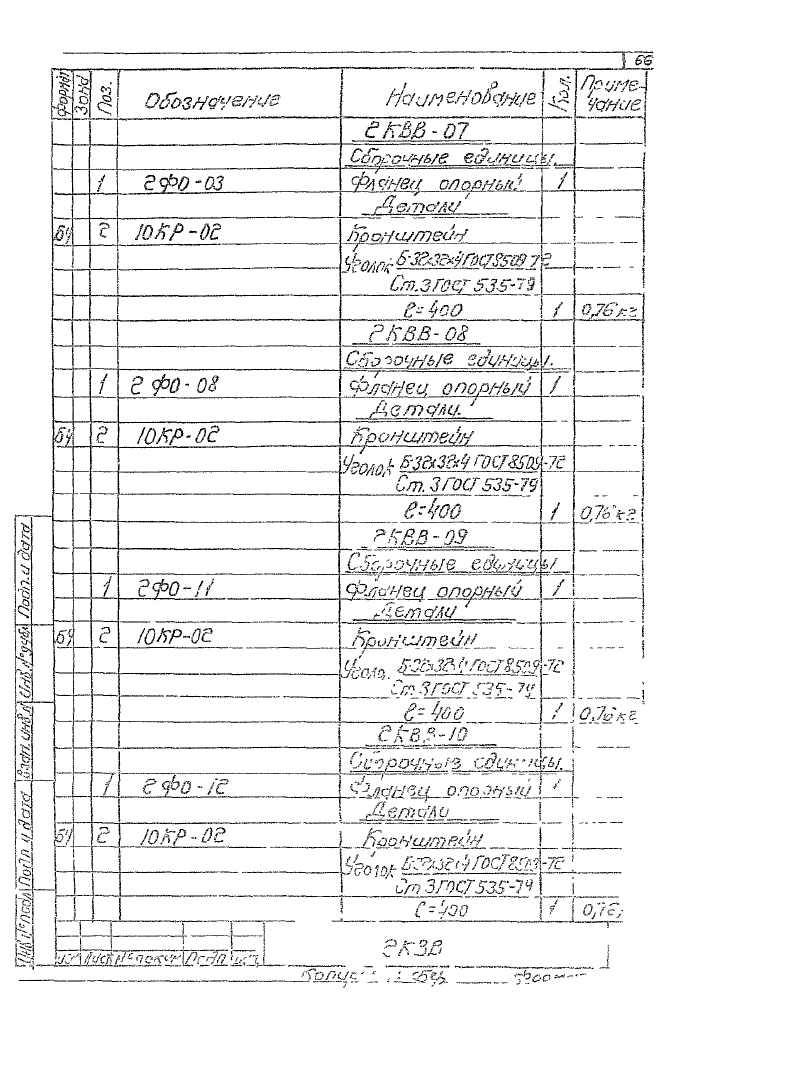 66
Формат Зона Поз. Обозначение Наименование Кол. Примечание
2КВВ-07
Сборочные единицы
1 2ФО-03 Фланец опорный 1
Детали
БЧ 2 10КР-02 Кронштейн
Уголок Б-32х32х4 ГОСТ 8509-72
Ст.3 ГОСТ 535-79
ℓ=400 1 0,76 кг
2КВВ-08
Сборочные единицы.
1 2ФО-08 Фланец опорный 1
Детали.
БЧ 2 10КР-02 Кронштейн
Уголок Б-32х32х4 ГОСТ 8509-72
Ст.3 ГОСТ 535-79
ℓ=400 1 0,76 кг
2КВВ-09
Сборочные единицы
1 2ФО-11 Фланец опорный 1
Детали
БЧ 2 10КР-02 Кронштейн
Б-32х32х4 ГОСТ 8509-72
Ст.3 ГОСТ 535-79
ℓ=400 1 0,76 кг
2КВВ-10
Сборочные единицы.
1 2ФО-12 Фланец опорный 1
Детали
БЧ 2 10КР-02 Кронштейн
Уголок Б-32х32х4 ГОСТ 8509-72
Ст.3 ГОСТ 535-79
ℓ=400 1 0,76
Подп. и дата
Инв.№ дубл.
Взам. инв.№
Подп. и дата
Инв.№ подл.
Изм Лист № докум Подп